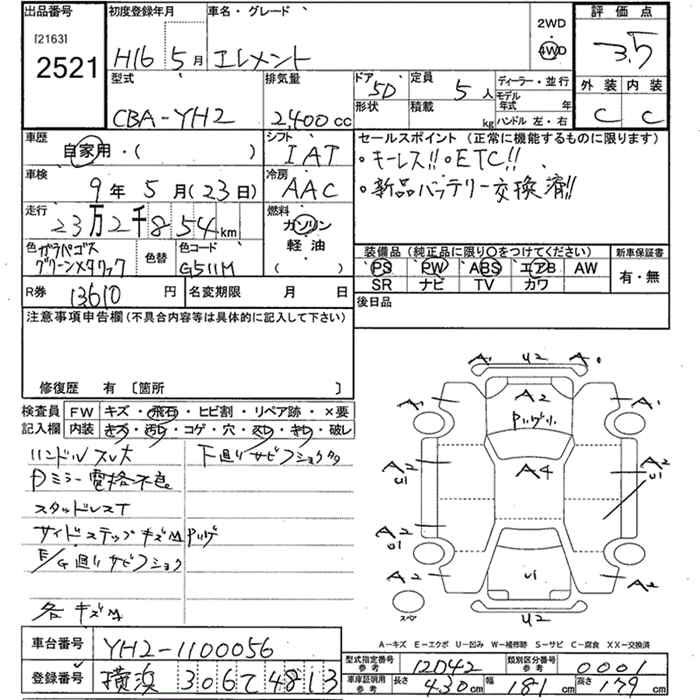 出品番号 初度登録年月 車名・グレード 2WD 評価点
[2163] H16 5月 エレメント 4WD 3.5
2521 型式 排気量 ドア 5D 定員 5人 ディーラー・並行 外装 内装
CBA-YH2 2,400cc 形状 積載 kg モデル年式 年 C C
ハンドル 左・右
車歴 自家用・( ) シフト IAT セールスポイント (正常に機能するものに限ります)
車検 9年5月(23日) 冷房 AAC 。キーレス!! 。ETC!!
走行 23万2千854km 燃料 ガソリン 軽油 ( ) 。新品バッテリー交換済!!
色 ガラパゴスグリーンメタリック 色替 色コード G511M 装備品(純正品に限り○をつけてください) 新車保証書
PS PW ABS エアB AW 有・無
SR ナビ TV カワ
R券 13610円 名変期限 月 日 後日品
注意事項申告欄(不具合内容等は具体的に記入して下さい)
修復歴 有 〔箇所 〕
検査員 FW キズ・飛石・ヒビ割・リペア跡・×要
記入欄 内装 きズ・汚れ・コゲ・穴・スレ・きり・破レ
ハンドルスレ大 下廻りサビフショク
Pミラー電格不良
スタッドレスT
サイドステップキズ
E/G廻りサビフショク
各キズ
A' U2 A
A' A2 A'
A4
A2 U1 A2 U1
A2 U1 A2
A2 U1 A2
スペ U2
A-キズ E-エクボ U-凹み W-補修跡 S-サビ C-腐食 XX-交換済
車台番号 YH2-1100056 型式指定番号 参考 12042 類別区分番号 参考 0001
登録番号 横浜 306 て 4813 車庫証明用 参考 長さ 430cm 幅 181cm 高さ 179cm